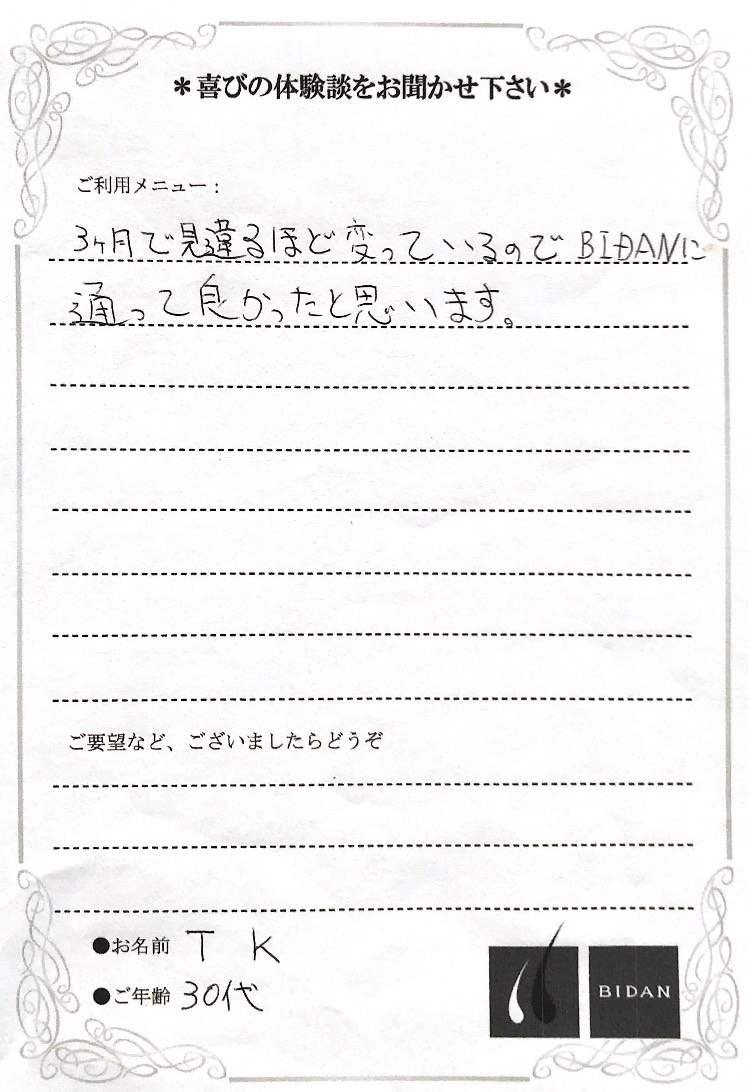 ＊喜びの体験談をお聞かせ下さい＊
ご利用メニュー：
3ヶ月で見違るほど変っているのでBIDANに
通って良かったと思います。
ご要望など、ございましたらどうぞ
●お名前 T K
●ご年齢 30代
BIDAN